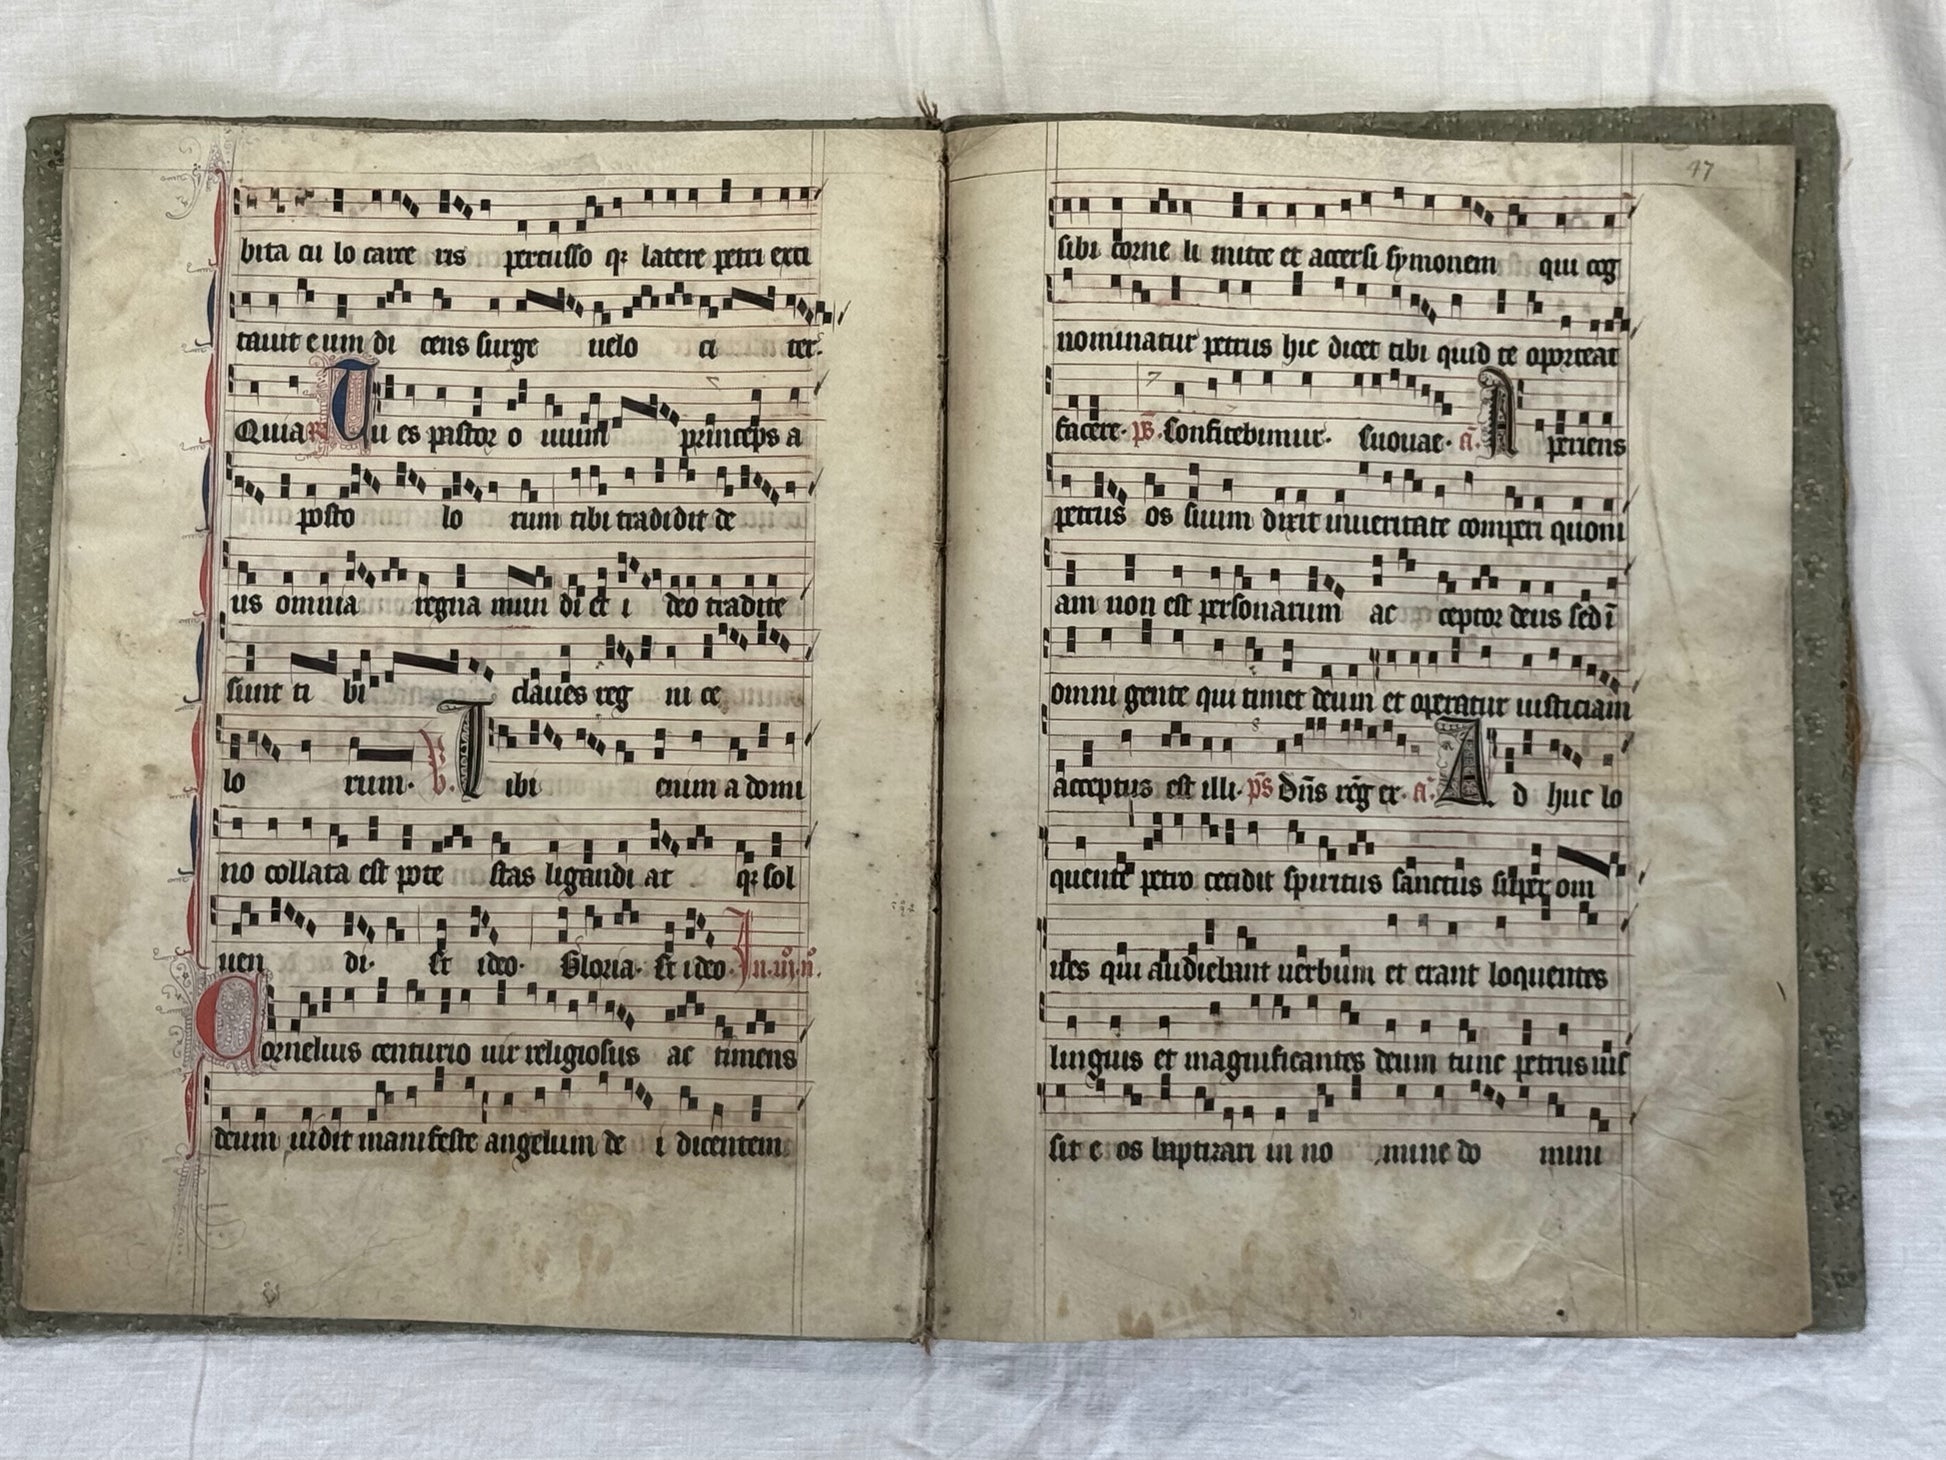 bita cu lo carce ris percusso qꝫ latere petri exci
tauit eum di cens surge uelo ci ter.
Quia ℟ Tu es pastor o uium princeps a
posto lo rum tibi tradidit de
us omnia regna mun di et i deo tradite
sunt ti bi claues reg ni ce
lo rum. ℣. Tibi enim a domi
no collata est pote stas ligandi at qꝫ sol
uen di. Et ideo. Gloria. Et ideo. In .iii. n̄.
Cornelius centurio uir religiosus ac timens
deum uidit manifeste angelum de i dicentem
47
sibi corne li mitte et accersi symonem qui cog
nominatur petrus hic dicet tibi quid te oporteat
facere. p̄s. Confitebimur. Euouae. a͞. Aperiens
petrus os suum dixit inueritate comperi quoni
am non est personarum ac ceptor deus sed ī
omni gente qui timet deum et operatur iusticiam
acceptus est illi. p̄s Dn̄s reḡ ex. a͞. Ad huc lo
quente petro cecidit spiritus sanctus super om
nes qui audiebant uerbum et erant loquentes
linguis et magnificantes deum tunc petrus iuſ
sit e os baptizari in no mine do mini